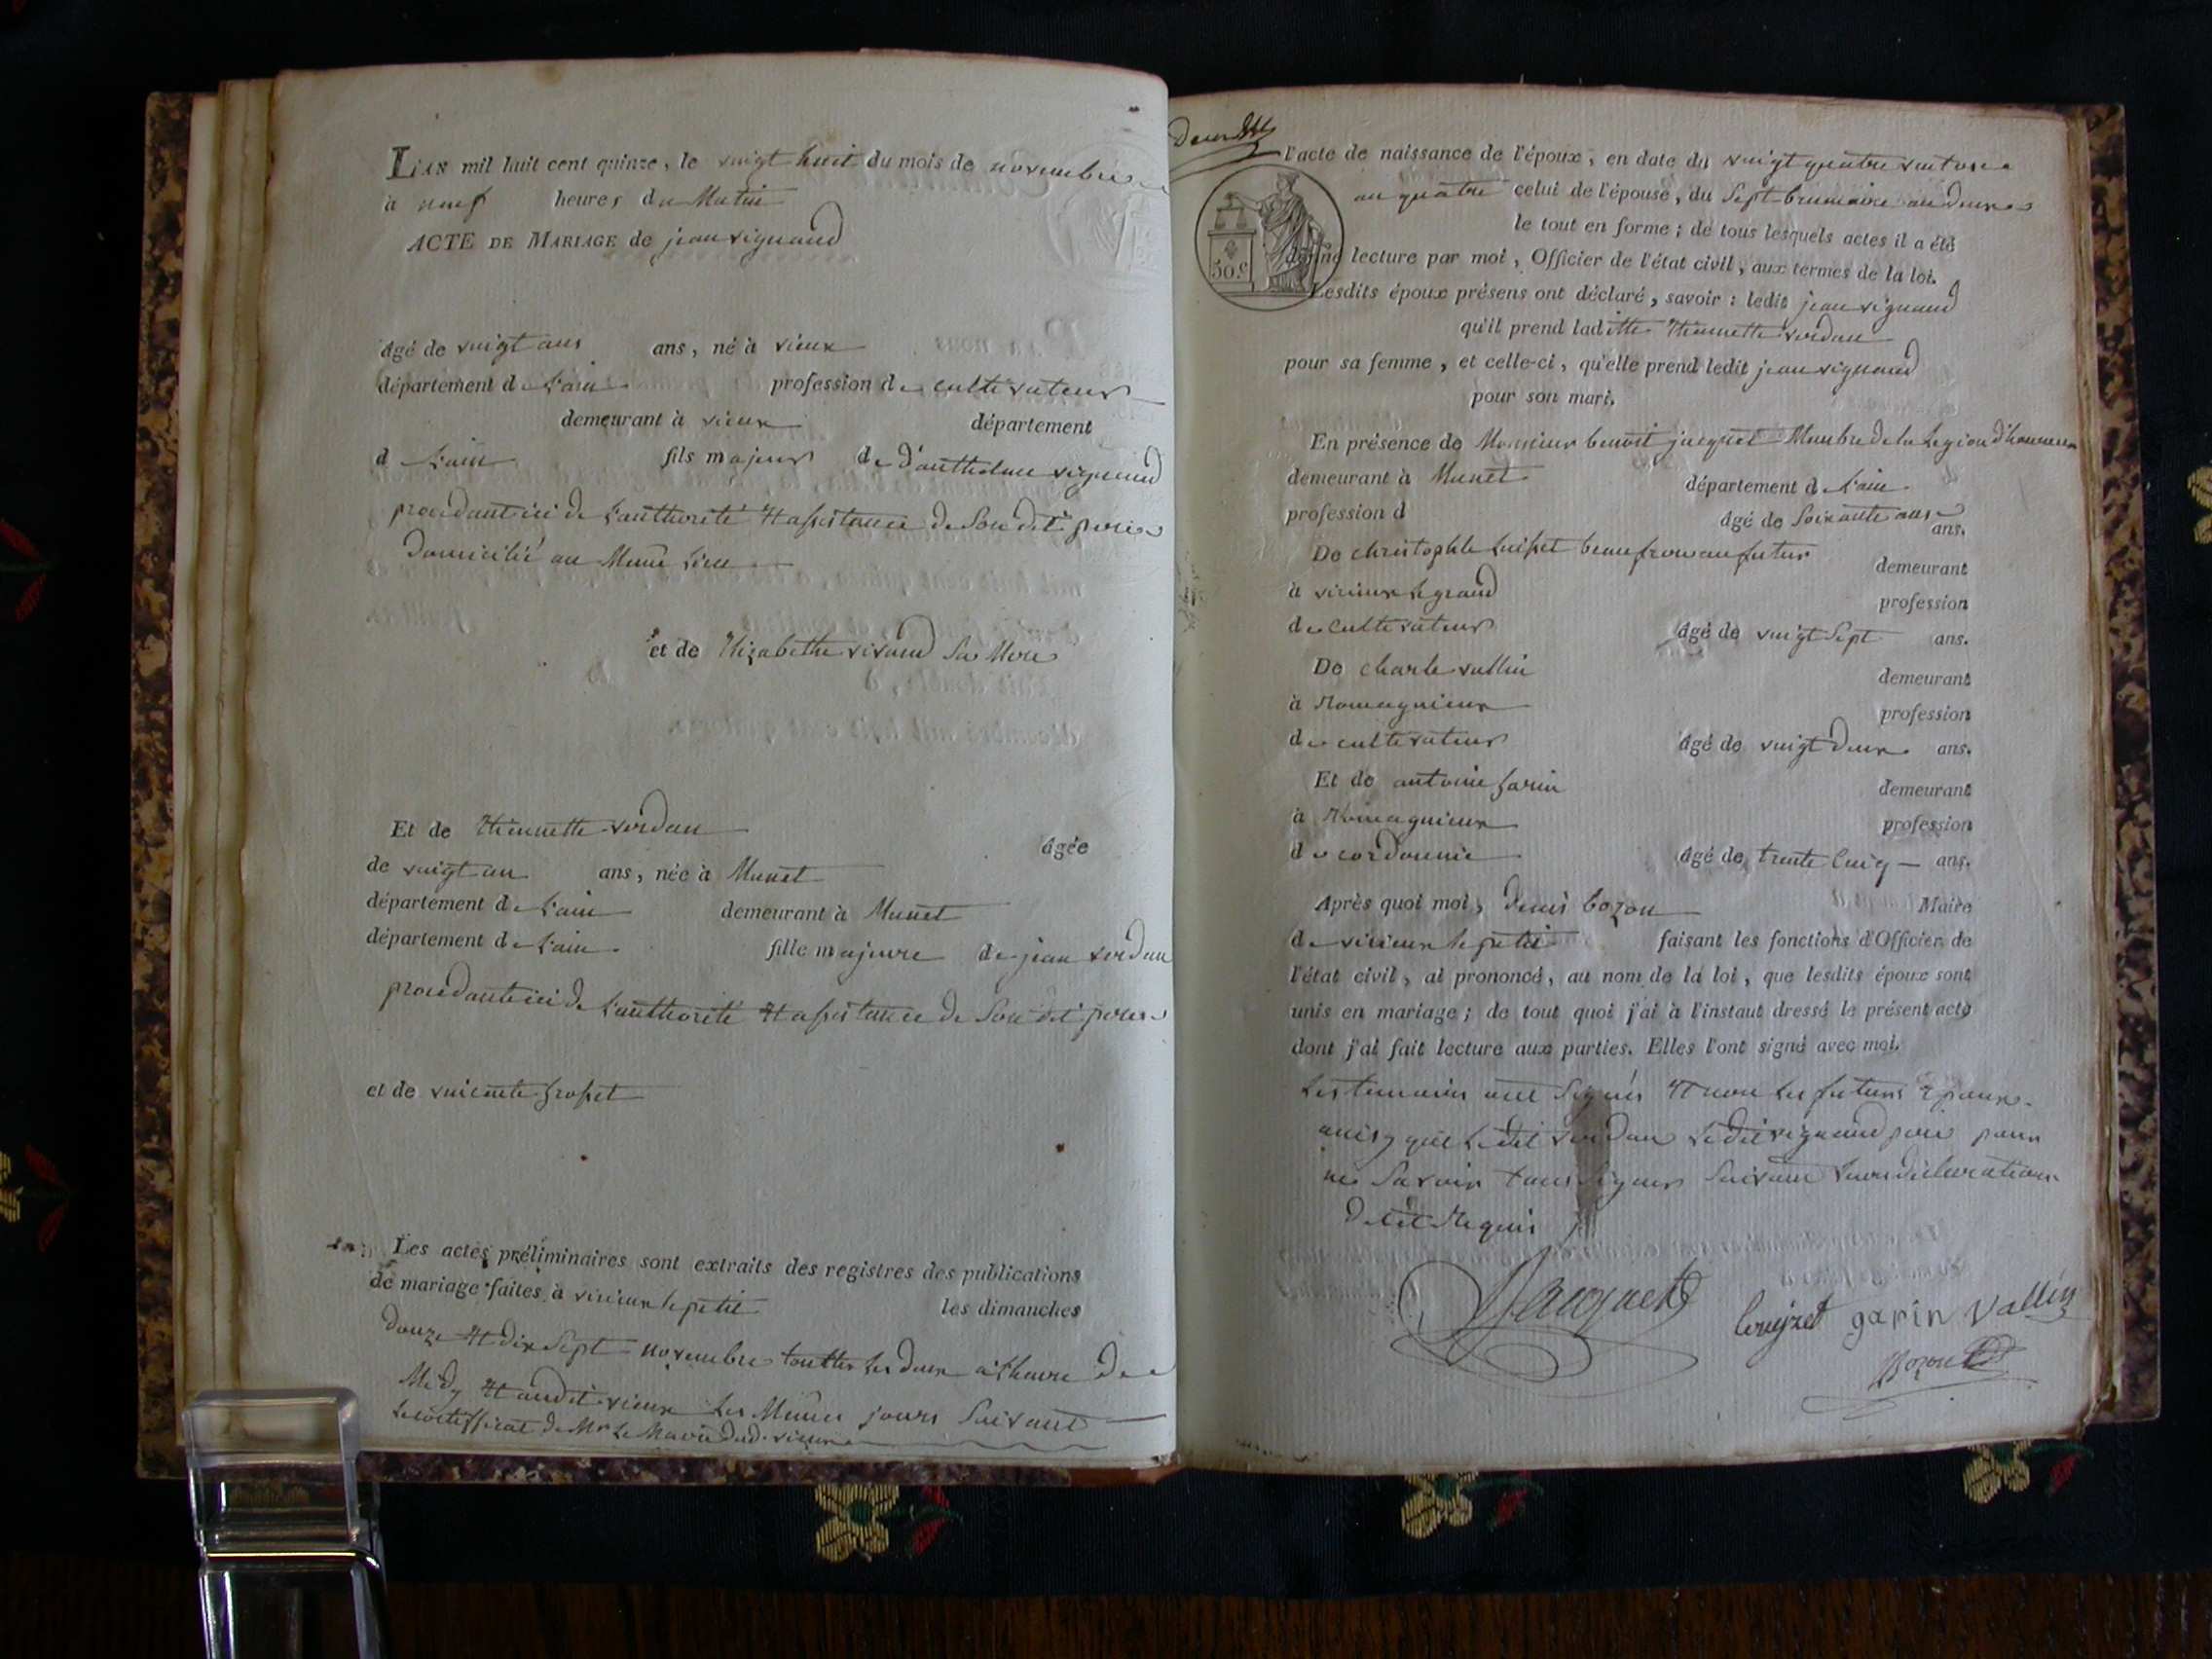 L'AN mil huit cent quinze, le vingt huit du mois de novembre
à neuf heures du Matin
ACTE DE MARIAGE de jean vignand
âgé de vingt ans ans, né à vieux
département de L'ain profession de cultivateur
demeurant à vieux département
d L'ain fils majeur de d'anthelme vignand
procedant ici de L'authorité Et assistance de Son dit pere
Domicilié au Même Lieu
et de Elizabethe vivand Sa Mere
Et de Etiennette verdan âgée
de vingt un ans, née à Munet
département de L'ain demeurant à Munet
département de L'ain fille majeure de jean verdan
procedante ici de L'authorité Et assistance de Son dit pere
et de vincente grosset
Les actes préliminaires sont extraits des registres des publications
de mariage faites à virieux le petit les dimanches
douze Et dix Sept novembre touttes les deux a L'heure de
Midy Et audit vieux Les Mêmes jours Suivant
Le certifficat de Mr Le Maire dud. vieux
l'acte de naissance de l'époux, en date du vingt quatre ventose
an quatre celui de l'épouse, du Sept brumaire an deux
le tout en forme ; de tous lesquels actes il a été
donné lecture par moi, Officier de l'état civil, aux termes de la loi.
50 c.
Lesdits époux présens ont déclaré, savoir : ledit jean vignand
qu'il prend laditte Etiennette verdan
pour sa femme, et celle-ci, qu'elle prend ledit jean vignand
pour son mari.
En présence de Monsieur benoit jacquet Membre de la Legion d'honneur
demeurant à Munet département d L'ain
profession d âgé de Soixante ans ans.
De christophle Luiset beaufrere au futur demeurant
à virieux le grand profession
de cultivateur âgé de vingt Sept ans.
De charle vallin demeurant
à Romagnieux profession
de cultivateur âgé de vingt deux ans.
Et de antoine garin demeurant
à Romagnieux profession
de cordonnie âgé de trente Cinq ans.
Après quoi moi, denis bozon Maire
de virieux le petit faisant les fonctions d'Officier de
l'état civil, ai prononcé, au nom de la loi, que lesdits époux sont
unis en mariage ; de tout quoi j'ai à l'instant dressé le présent acte
dont j'ai fait lecture aux parties. Elles l'ont signé avec moi.
Les temoins ont Signés Et non Les futurs Epoux
ainsy que Le dit verdan Le dit vignand pere pour
ne Savoir tous Signer Suivant Leurs declarations
de ce Requis
Jacquet
Louizet garin Vallin
Bozon